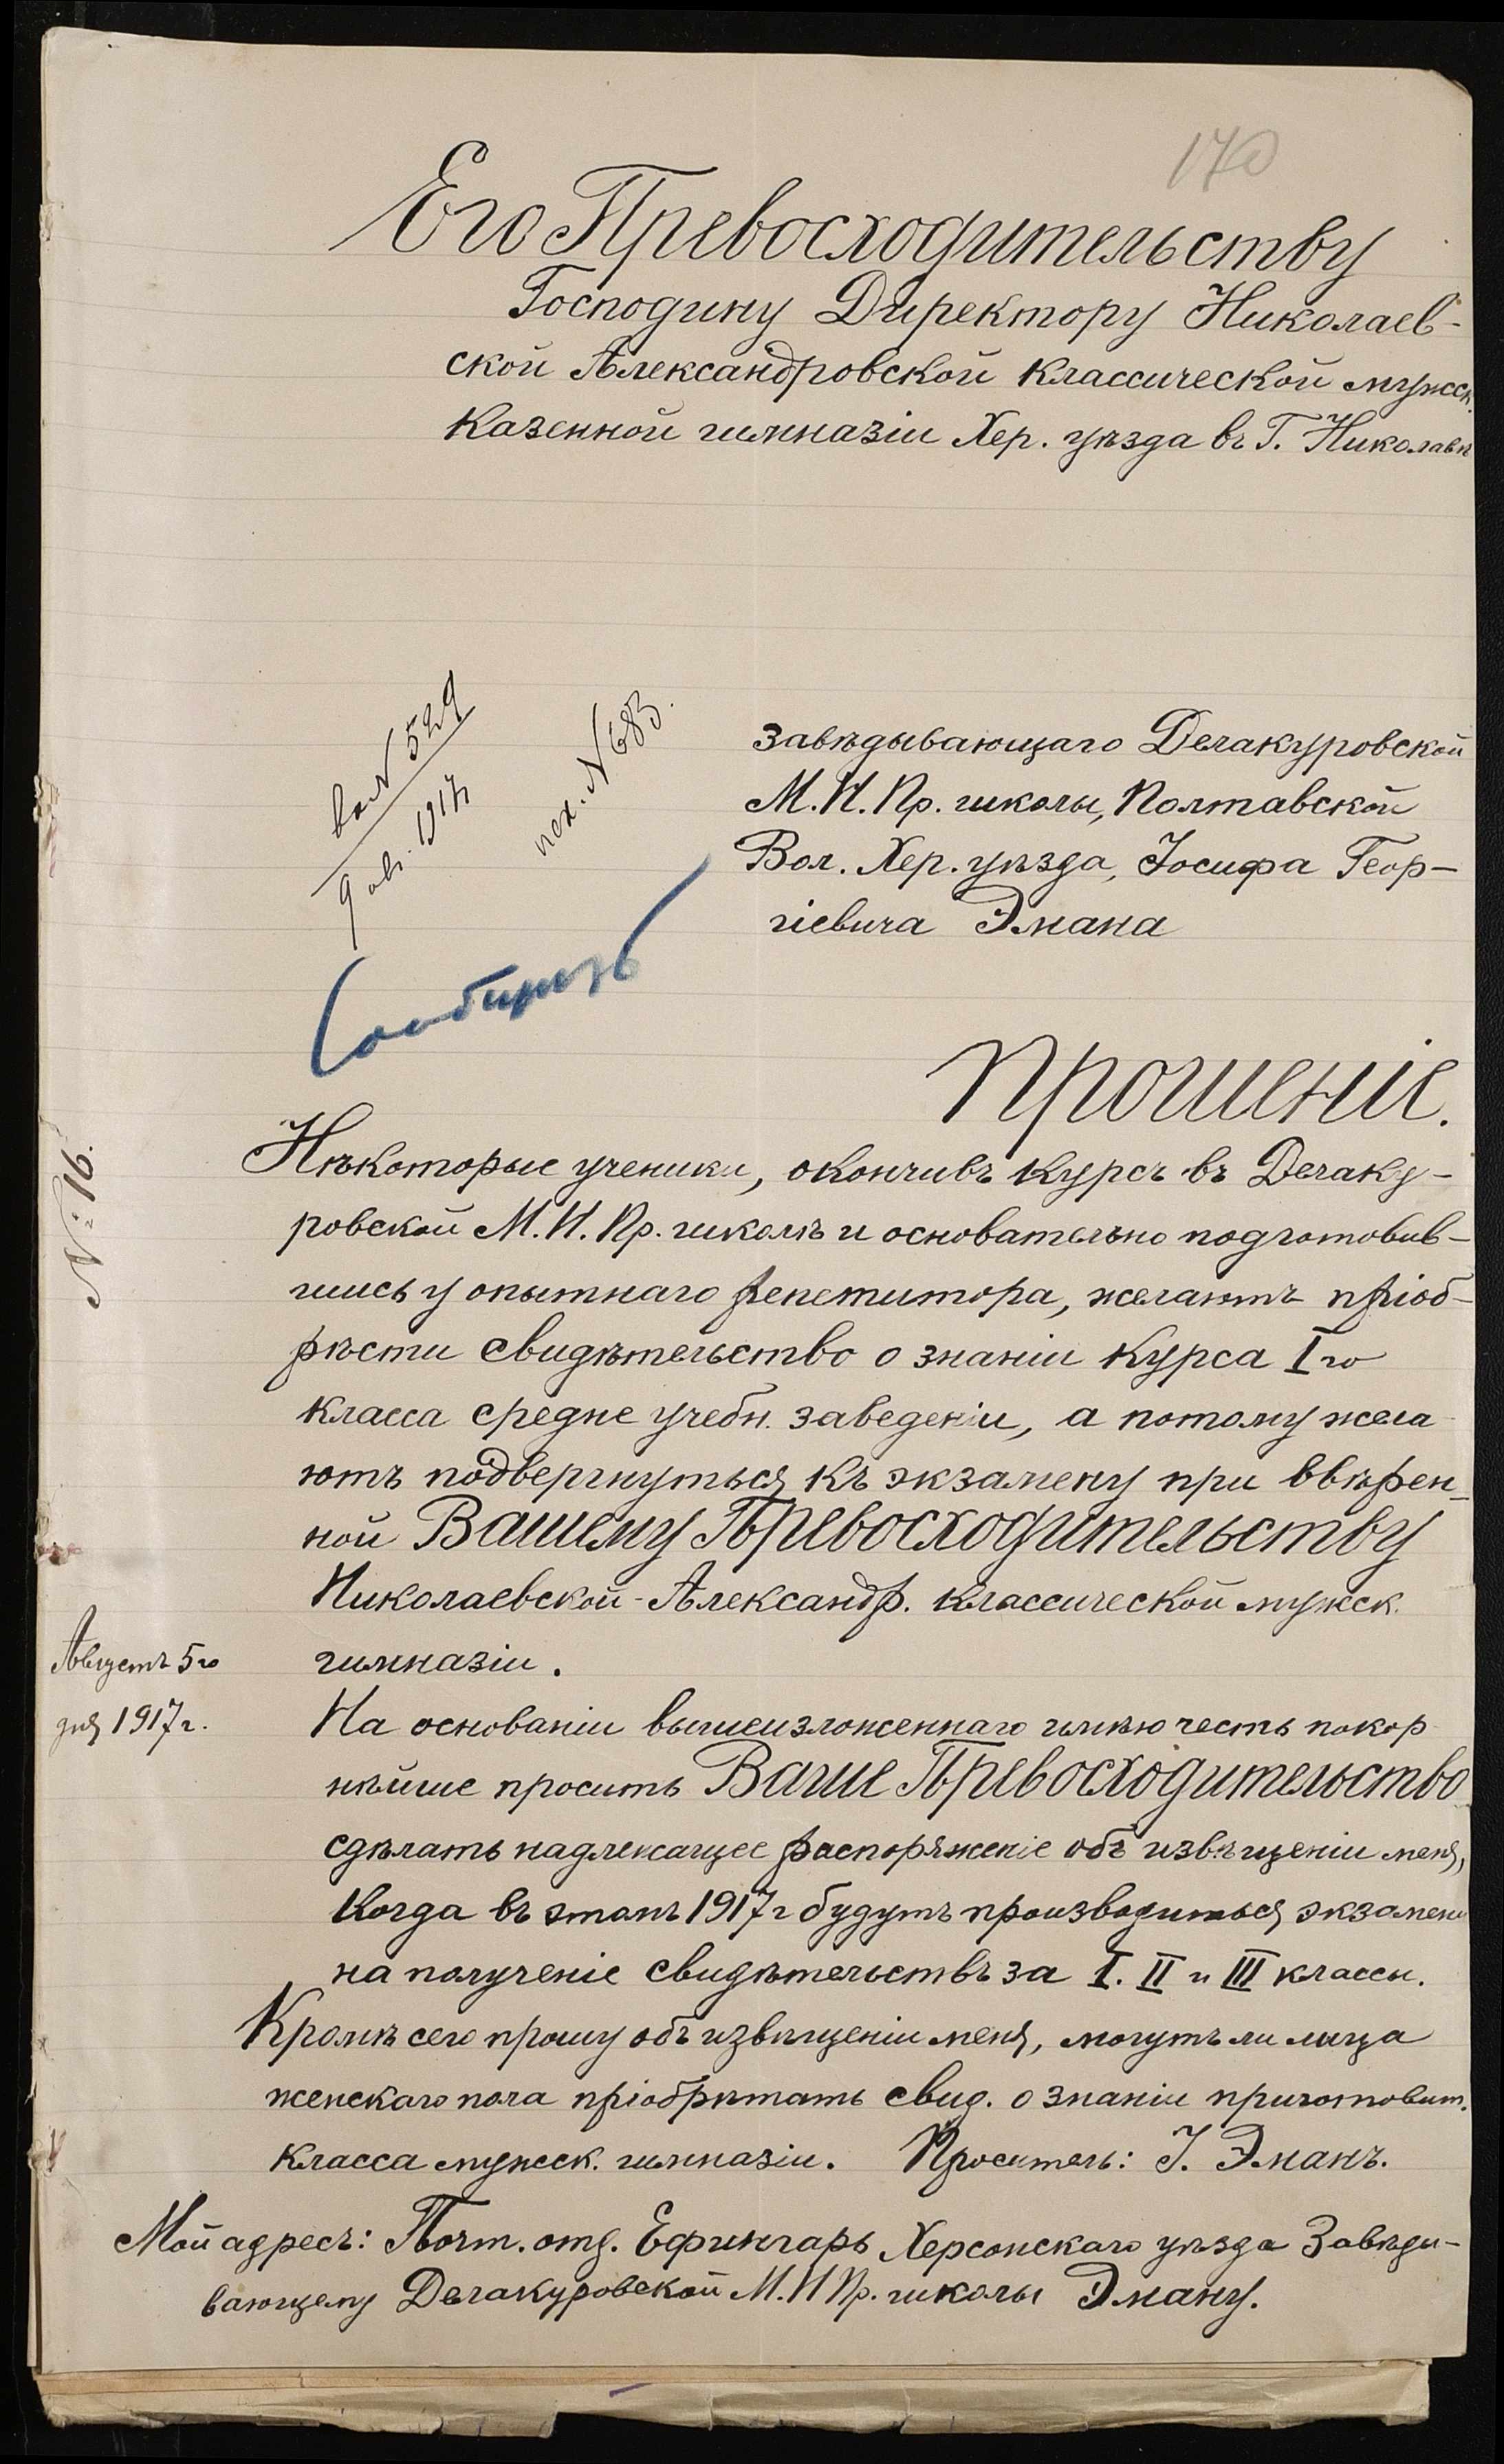 170
Его Превосходительству
Господину Директору Николаев-
ской Александровской классической мужск.
казенной гимназіи Хер. уѣзда въ Г. Николаевѣ
вх. N 529
9 авг. 1917 г.
исх. N 683.
завѣдывающаго Делакуровской
М. Н. Пр. школы, Полтавской
Вол. Хер. уѣзда, Іосифа Геор-
гіевича Эмана
Сообщить
Прошеніе.
N: 16.
Нѣкоторые ученики, окончивъ курсъ въ Делаку-
ровской М. Н. Пр. школѣ и основательно подготовив-
шись у опытнаго репетитора, желаютъ пріоб-
рѣсти свидѣтельство о знаніи курса I го
класса средне учебн. заведеніи, а потому жела-
ютъ подвергнуться къ экзамену при ввѣрен-
ной Вашему Превосходительству
Николаевской-Александр. классической мужск.
гимназіи.
Августъ 5го
дня 1917 г.
На основаніи вышеизложеннаго имѣю честь покор
нѣйше просить Ваше Превосходительство
сдѣлать надлежащее распоряженіе объ извѣщеніи меня,
когда въ этомъ 1917 г будутъ производиться экзамены
на полученіе свидѣтельствъ за I. II и III классы.
Кромѣ сего прошу объ извѣщеніи меня, могутъ ли лица
женскаго пола пріобрѣтать свид. о знаніи приготовит.
класса мужск. гимназіи. Проситель: І. Эманъ.
Мой адресъ: Почт. отд. Ефингаръ Херсонскаго уѣзда Завѣди-
вающему Делакуровской М. Н Пр. школы Эману.